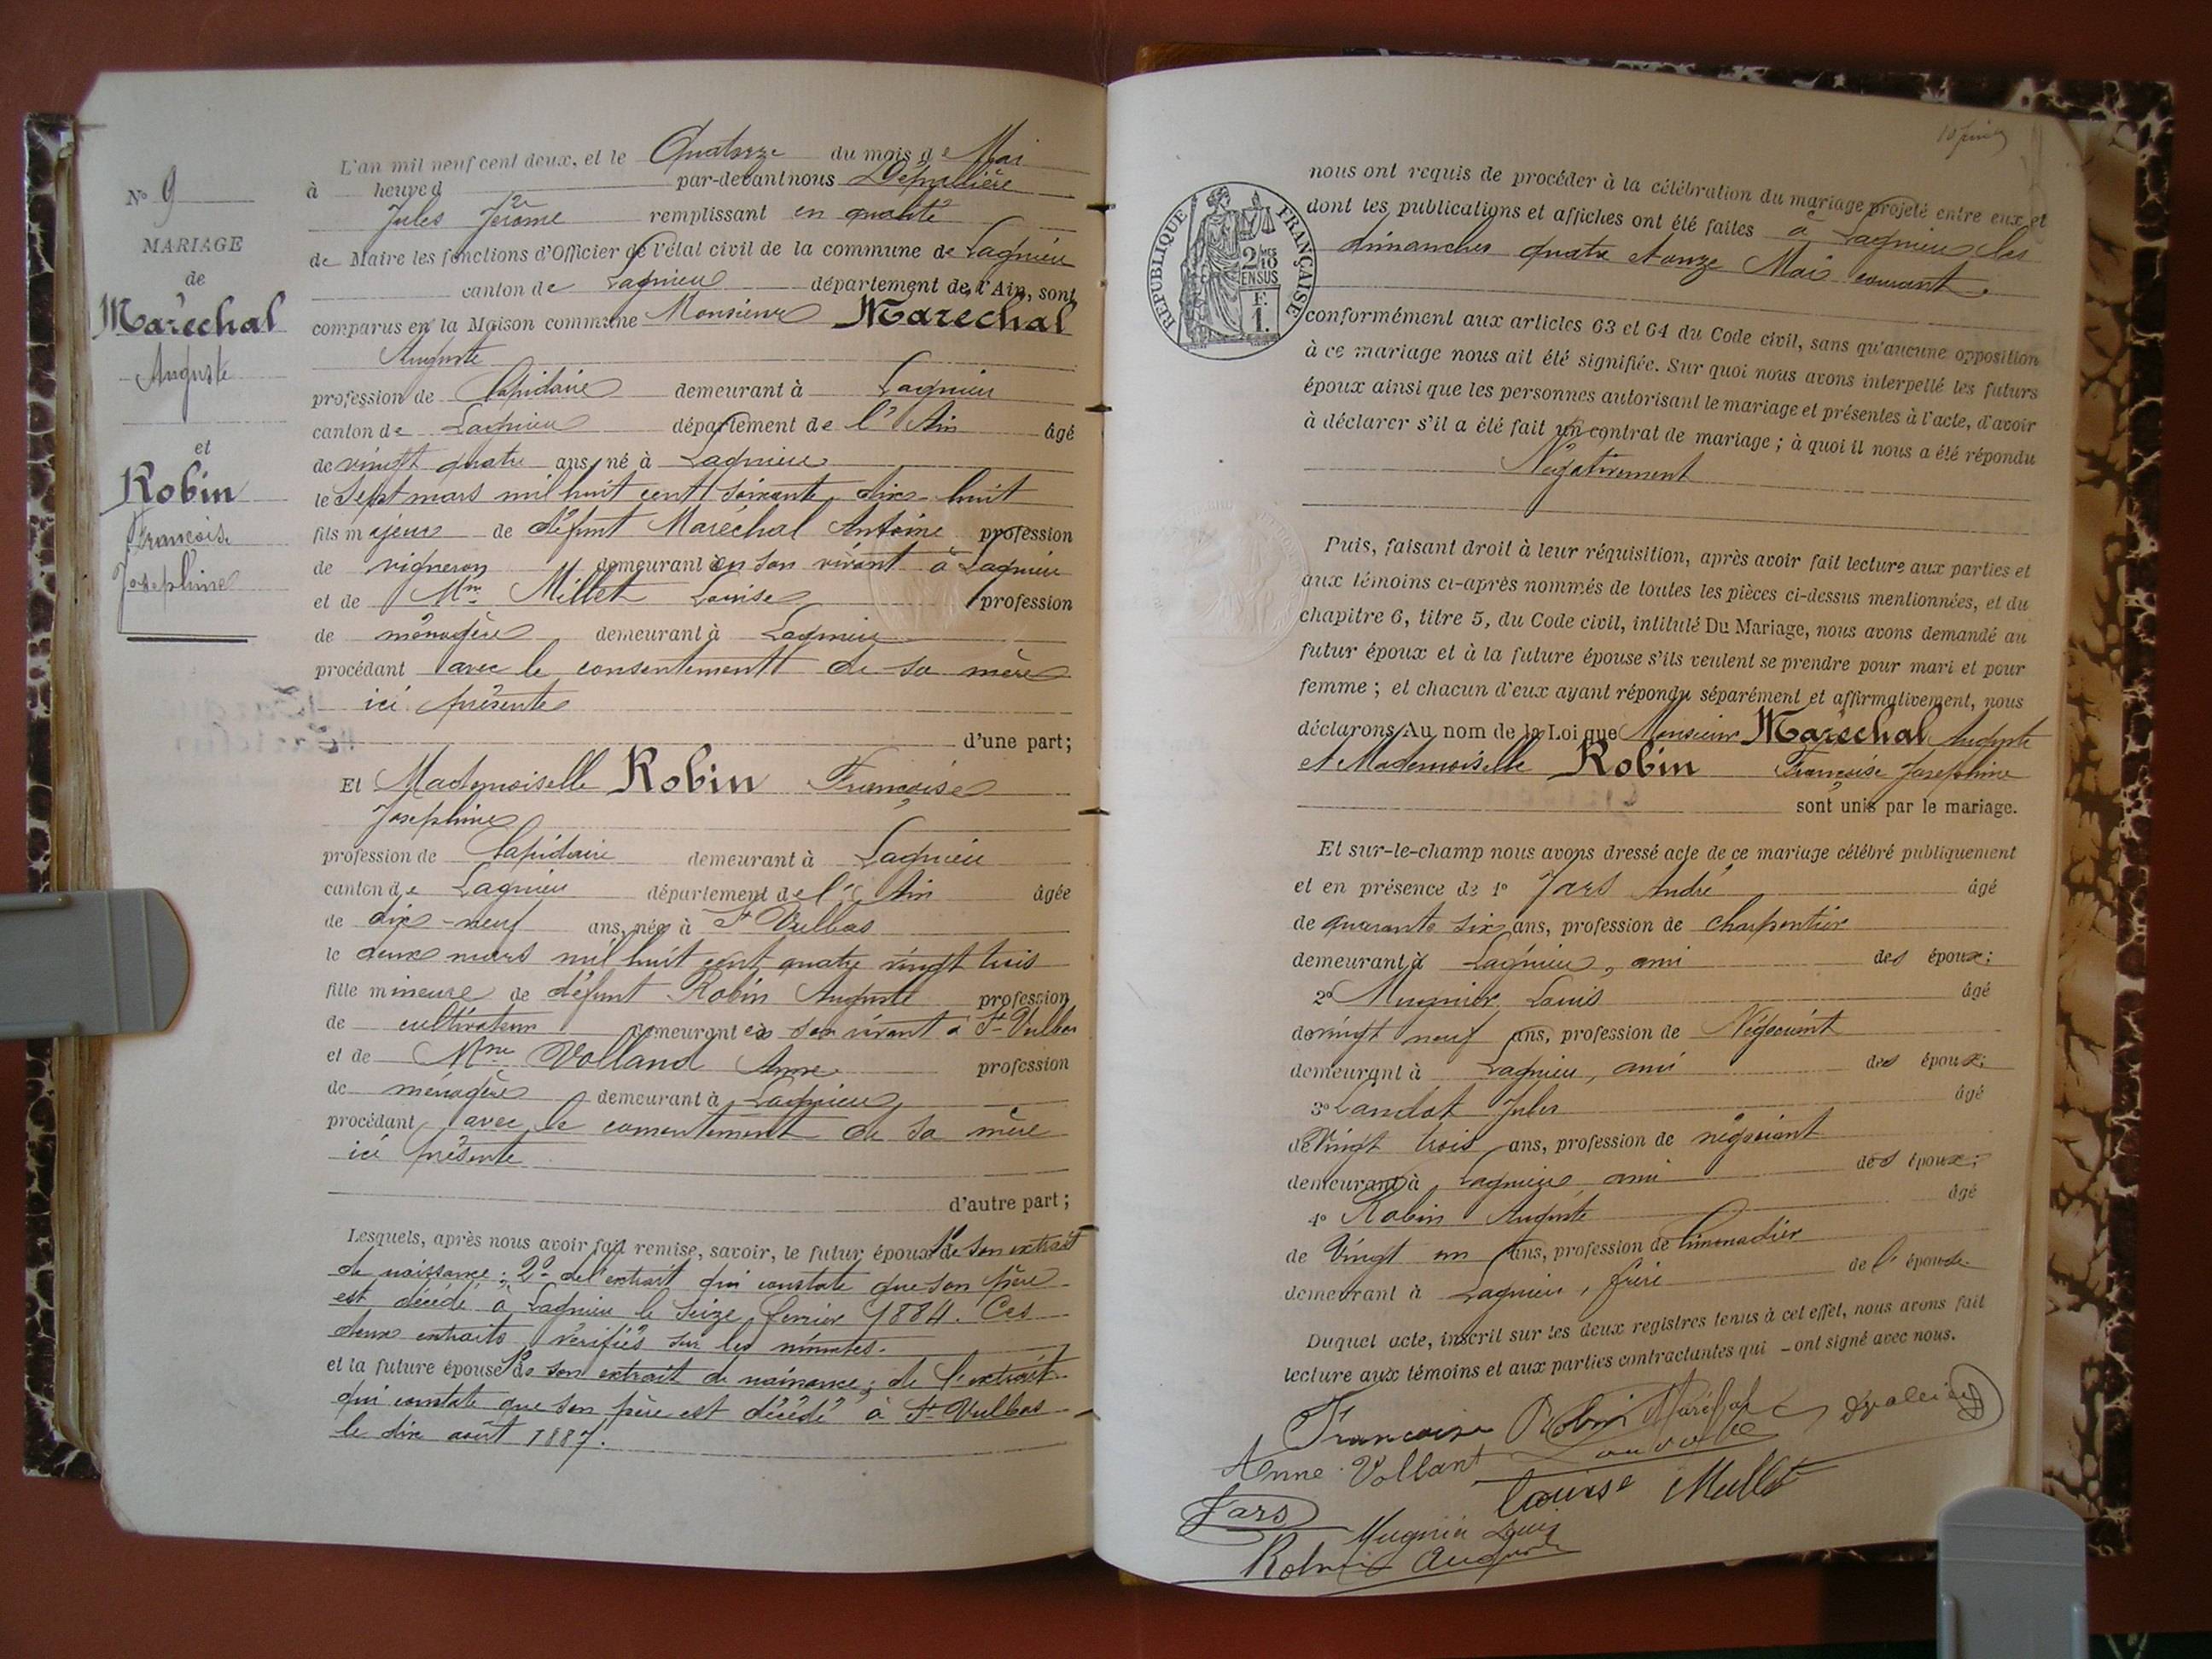 N° 9
MARIAGE
de
Maréchal
Auguste
et
Robin
Françoise
Josephine
L'an mil neuf cent deux, et le Quatorze du mois de Mai
à heure d par-devant nous
Jules Jérôme remplissant en qualité
de Maire les fonctions d'Officier de l'état civil de la commune de Lagnieu
canton de Lagnieu département de l'Ain, sont
comparus en la Maison commune Monsieur Maréchal
Auguste
profession de Lapidaire demeurant à Lagnieu
canton de Lagnieu département de l'Ain âgé
de vingt quatre ans, né à Lagnieu
le Sept mars mil huit cent soixante dix-huit
fils majeur de défunt Maréchal Antoine profession
de vigneron demeurant en son vivant à Lagnieu
et de Mme Millet Louise profession
de ménagère demeurant à Lagnieu
procédant avec le consentement de sa mère
ici présente
d'une part;
Et Mademoiselle Robin Françoise
Josephine
profession de Lapidaire demeurant à Lagnieu
canton de Lagnieu département de l'Ain âgée
de dix-neuf ans, née à St Vulbas
le deux mars mil huit cent quatre vingt trois
fille mineure de défunt Robin Auguste profession
de cultivateur demeurant en son vivant à St Vulbas
et de Mme Volland Anne profession
de ménagère demeurant à Lagnieu
procédant avec le consentement de sa mère
ici présente
d'autre part;
Lesquels, après nous avoir fait remise, savoir, le futur époux 1° de son extrait
de naissance; 2° de l'extrait qui constate que son père
est décédé à Lagnieu le seize fevrier 1884. Ces
deux extraits vérifiés sur les minutes.
et la future épouse 1° de son extrait de naissance; de l'extrait
qui constate que son père est décédé à St Vulbas
le dix août 1887.
RÉPUBLIQUE FRANÇAISE
2/10es
EN SUS
F.
1.
nous ont requis de procéder à la célébration du mariage projeté entre eux et
dont les publications et affiches ont été faites à Lagnieu les
dimanches quatre et onze Mai courant.
conformément aux articles 63 et 64 du Code civil, sans qu'aucune opposition
à ce mariage nous ait été signifiée. Sur quoi nous avons interpellé les futurs
époux ainsi que les personnes autorisant le mariage et présentes à l'acte, d'avoir
à déclarer s'il a été fait un contrat de mariage; à quoi il nous a été répondu
Négativement
Puis, faisant droit à leur réquisition, après avoir fait lecture aux parties et
aux témoins ci-après nommés de toutes les pièces ci-dessus mentionnées, et du
chapitre 6, titre 5, du Code civil, intitulé Du Mariage, nous avons demandé au
futur époux et à la future épouse s'ils veulent se prendre pour mari et pour
femme; et chacun d'eux ayant répondu séparément et affirmativement, nous
déclarons Au nom de la Loi que Monsieur Maréchal Auguste
et Mademoiselle Robin Françoise Josephine
sont unis par le mariage.
Et sur-le-champ nous avons dressé acte de ce mariage célébré publiquement
et en présence de 1° Jars André âgé
de quarante six ans, profession de charpentier
demeurant à Lagnieu, ami des époux;
2° Mugnier Louis âgé
de vingt neuf ans, profession de Négociant
demeurant à Lagnieu, ami des époux;
3° Landot Jules âgé
de Vingt trois ans, profession de négociant
demeurant à Lagnieu ami des époux;
4° Robin Auguste âgé
de Vingt un ans, profession de limonadier
demeurant à Lagnieu, frère de l'épouse.
Duquel acte, inscrit sur les deux registres tenus à cet effet, nous avons fait
lecture aux témoins et aux parties contractantes qui ont signé avec nous.
Françoise Robin Maréchal
Anne Vollant
Louise Millet
Jars
Mugnier Louis
Robin Auguste